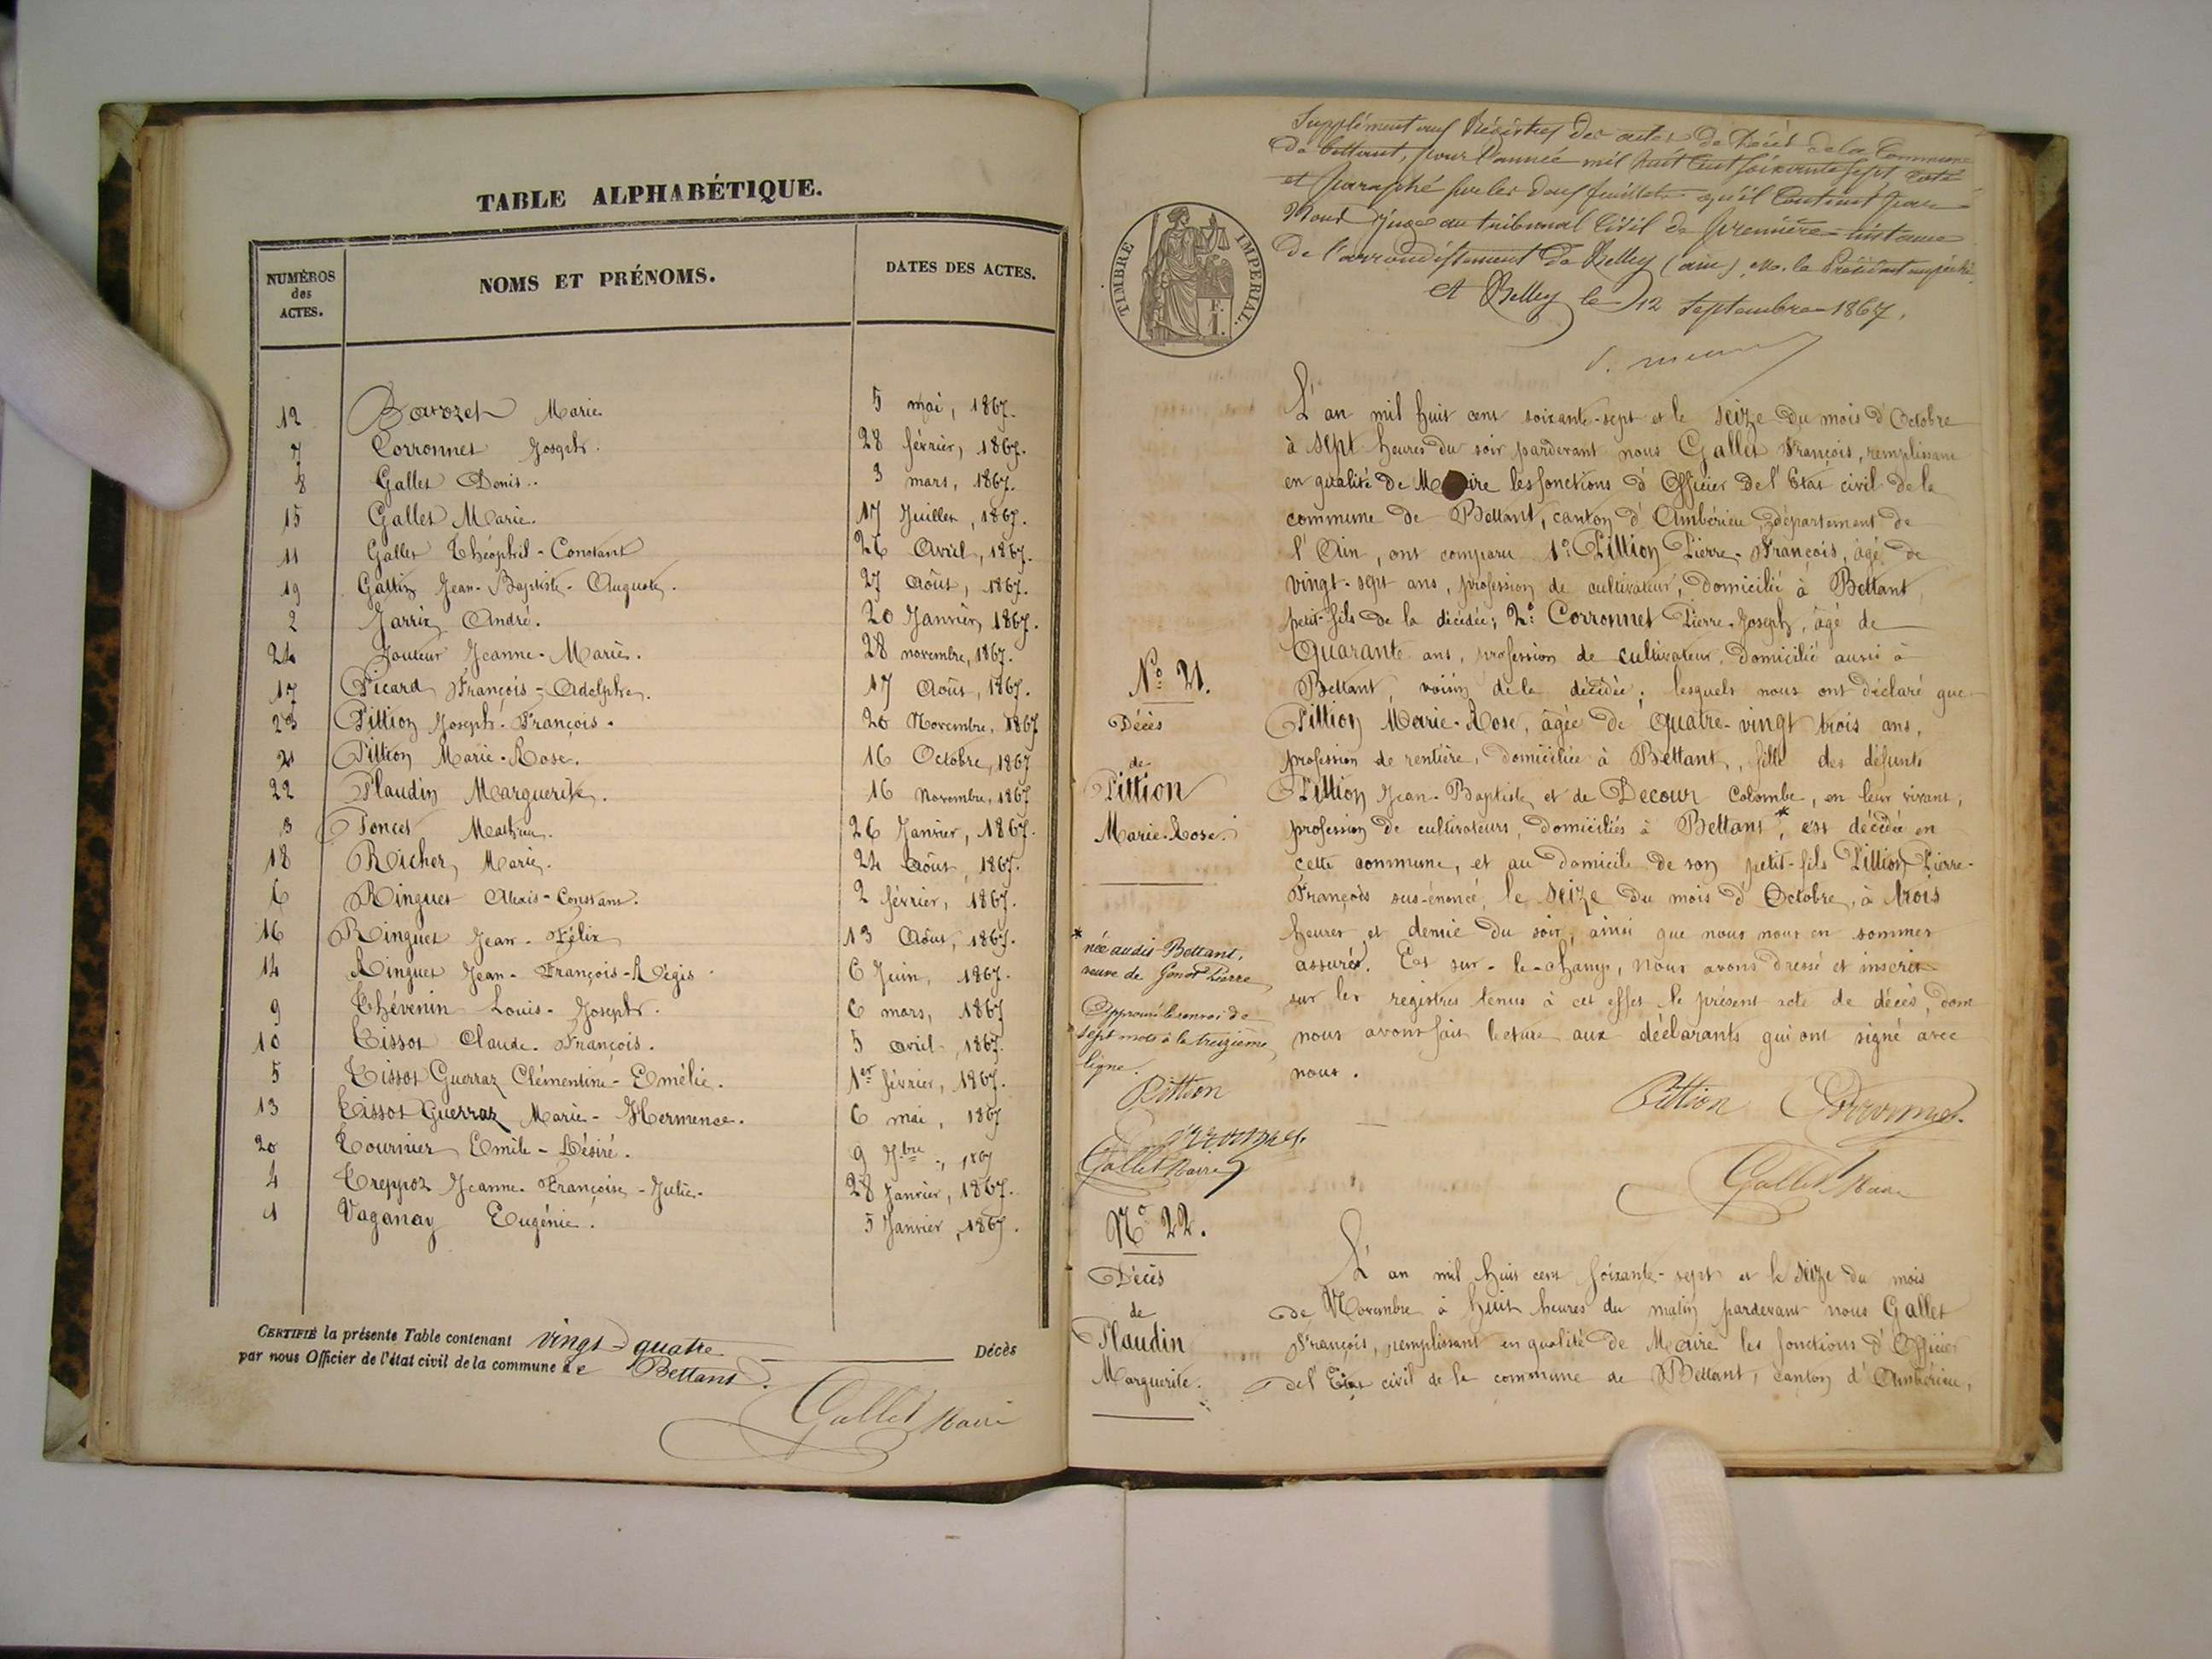 TABLE ALPHABÉTIQUE.
NUMÉROS
des
ACTES.
NOMS ET PRÉNOMS.
DATES DES ACTES.
12 Barozet Marie 5 mai, 1867.
7 Corronnet Joseph. 28 février, 1867.
8 Gallet Denis.. 3 mars, 1867.
15 Gallet Marie. 17 Juillet, 1867.
11 Gallet Théophil-Constant 26 Avril, 1867.
19 Gattin Jean-Baptiste-Auguste. 27 Août, 1867.
2 Jarrin André. 20 Janvier, 1867.
24 Jouteur Jeanne-Marie. 28 novembre, 1867.
17 Picard François-Adolphe. 17 Août, 1867.
23 Pittion Joseph-François. 20 Novembre, 1867
21 Pittion Marie-Rose. 16 Octobre, 1867
22 Plaudin Marguerite. 16 Novembre, 1867
3 Poncet Mathieu. 26 Janvier, 1867.
18 Richer Marie. 24 Août, 1867.
6 Ringuet Alexis-Constant. 2 février, 1867.
16 Ringuet Jean-Félix 13 Août, 1867.
14 Ringuet Jean-François-Régis 6 Juin, 1867.
9 Thévenin Louis-Joseph. 6 mars, 1867
10 Tissot Claude-François. 5 avril, 1867.
5 Tissot Guerraz Clémentine-Emélie. 1er février, 1867.
13 Tissot Guerraz Marie-Hermence. 6 mai, 1867
20 Tournier Emile-Désiré. 9 7bre, 1867
4 Treppoz Jeanne-Françoise-Julie. 28 Janvier, 1867.
1 Vaganay Eugénie. 5 Janvier, 1867.
CERTIFIÉ la présente Table contenant vingt-quatre Décès
par nous Officier de l'état civil de la commune de Bettant.
Gallet Maire
Supplément aux Registres des actes de Décès de la Commune
de bettant, pour l'année mil huit Cent soixante sept coté
et paraphé sur les deux feuillets qu'il Contient par
Nous Juge au tribunal Civil de première instance
De l'arrondissement de Belley (ain), M. le Président empêché.
A Belley le 12 Septembre 1867.
TIMBRE IMPÉRIAL.
L'an mil huit cent soixante-sept et le seize du mois d'Octobre
à sept heures du soir pardevant nous Gallet François, remplissant
en qualité de Maire les fonctions d'Officier de l'Etat civil de la
commune de Bettant, canton d'Ambérieu, département de
l'Ain, ont comparu 1º Pittion Pierre-François, âgé de
vingt-sept ans, profession de cultivateur, domicilié à Bettant,
petit-fils de la décédée; 2º Corronnet Pierre-Joseph, âgé de
Quarante ans, profession de cultivateur, domicilié aussi à
Bettant, voisin de la décédée; lesquels nous ont déclaré que
Pittion Marie-Rose, âgée de quatre-vingt trois ans,
profession de rentière, domiciliée à Bettant, fille des défunts
Pittion Jean-Baptiste et de Decour Colombe, en leur vivant,
profession de cultivateurs, domiciliés à Bettant*, est décédée en
cette commune, et au domicile de son petit-fils Pittion Pierre-
François sus-énoncé, le seize du mois d'Octobre, à trois
heures et demie du soir, ainsi que nous nous en sommes
assurés. Et sur-le-champ, nous avons dressé et inscrit
sur les registres tenus à cet effet le présent acte de décès, dont
nous avons fait lecture aux déclarants qui ont signé avec
nous.
Pittion Corronnet.
Gallet Maire
Nº 21.
Décès
de
Pittion
Marie-Rose.
* née audit Bettant,
veuve de Gonod Pierre
Approuvé le renvoi de
sept mots à la treizième
ligne.
Pittion
Corronnet.
Gallet Maire
Nº 22.
Décès
de
Plaudin
Marguerite.
L'an mil huit cent soixante-sept et le seize du mois
de Novembre à huit heures du matin pardevant nous Gallet
François, remplissant en qualité de Maire les fonctions d'Officier
de l'Etat civil de la commune de Bettant, canton d'Ambérieu,